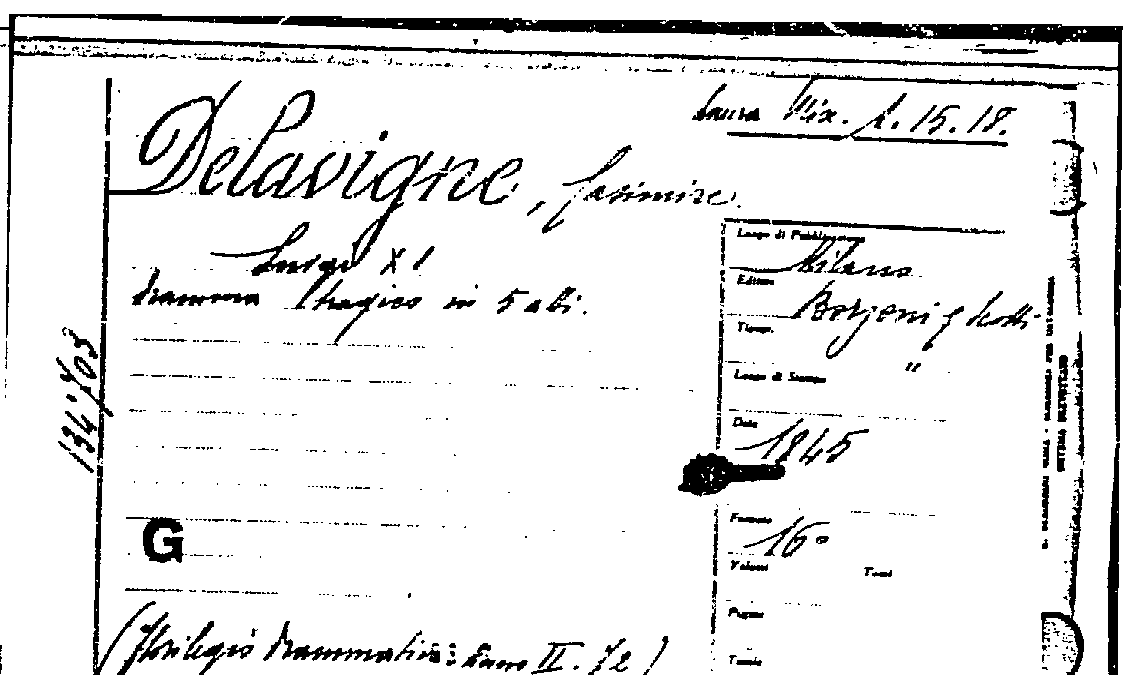 Laura Mix. A. 15. 18.
Delavigne, Casimire.
Luigi XI
dramma tragico in 5 atti.
Luogo di Pubblicazione
Milano
Editore
Borroni e Scotti
Tipogr.
"
Luogo di Stampa
Data
1845
Formato
16°
Volumi Tomi
Pagine
Tavole
G
(Florilegio drammatico: Anno II. f2)